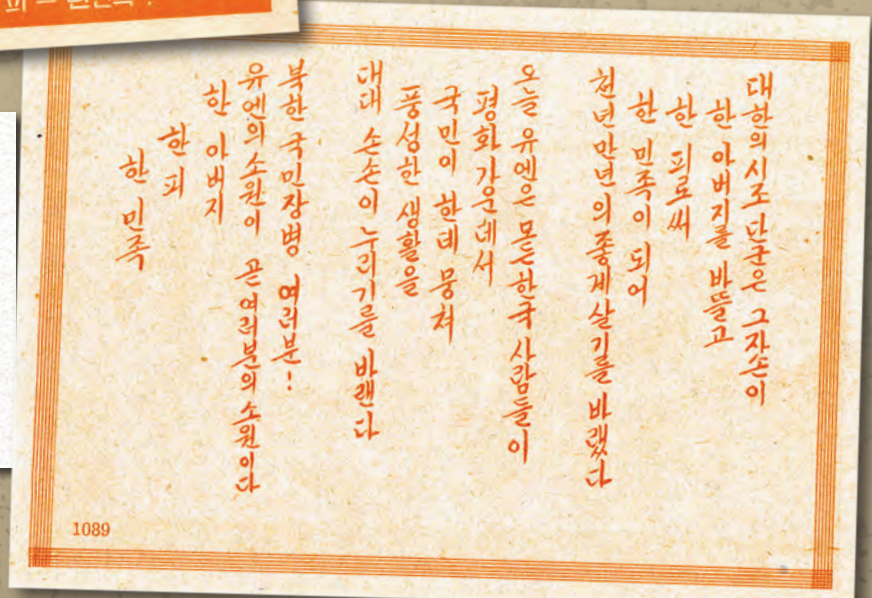 대한의 시조 단군은 그자손이
한 아버지를 바뜰고
한 피로써
한 민족이 되어
천년만년의 좋게 살기를 바랬다
오늘 유엔은 모든 한국 사람들이
평화 가운데서
국민이 한데 뭉쳐
풍성한 생활을
대대 손손이 누리기를 바랜다
북한 국민장병 여러분!
유엔의 소원이 곧 여러분의 소원이다
한 아버지
한 피
한 민족
1089